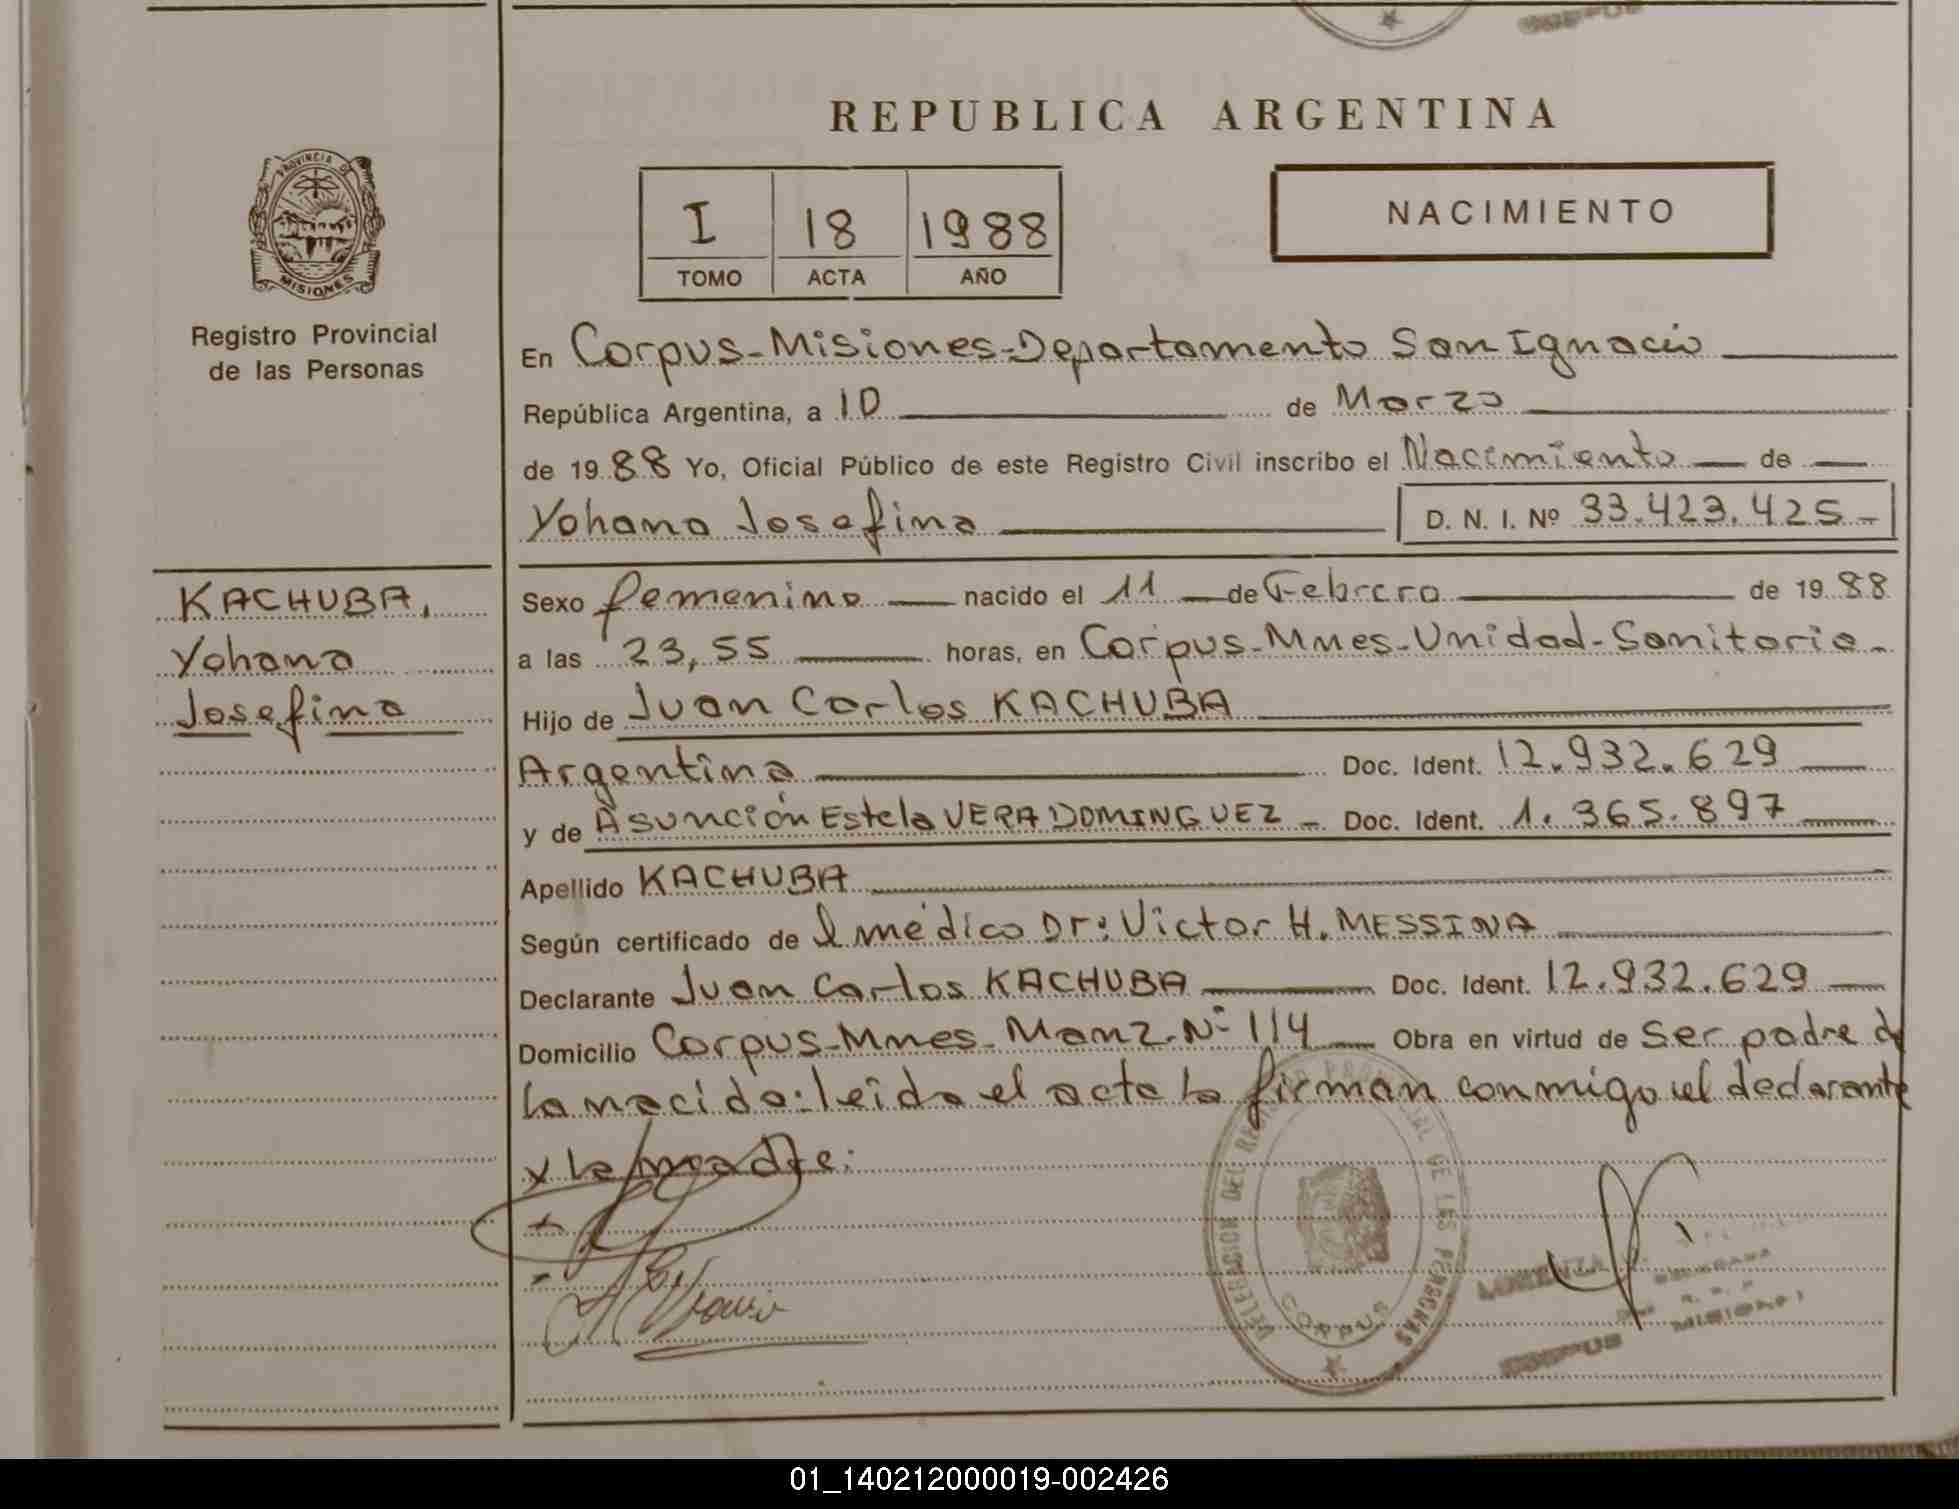 REPUBLICA ARGENTINA
PROVINCIA DE
MISIONES
Registro Provincial
de las Personas
I 18 1988
TOMO ACTA AÑO
NACIMIENTO
En Corpus-Misiones-Departamento San Ignacio
República Argentina, a 10 de Marzo
de 1988 Yo, Oficial Público de este Registro Civil inscribo el Nacimiento de
Yohana Josefina D. N. I. Nº 33.423.425-
KACHUBA,
Yohana
Josefina
Sexo femenino nacido el 11 de Febrero de 1988
a las 23,55 horas, en Corpus-Mnes-Unidad-Sanitaria-
Hijo de Juan Carlos KACHUBA
Argentina Doc. Ident. 12.932.629
y de Asunción Estela VERA DOMINGUEZ - Doc. Ident. 1.365.897
Apellido KACHUBA
Según certificado de l médico Dr: Victor H. MESSINA
Declarante Juan Carlos KACHUBA Doc. Ident. 12.932.629
Domicilio Corpus-Mnes-Manz-Nº 114 Obra en virtud de ser padre d
la nacida: leida el acta la firman conmigo el declarante
y la madre:
DELEGACION DEL REGISTRO PROVINCIAL DE LAS PERSONAS
CORPUS
MISIONES
CORPUS
01_140212000019-002426